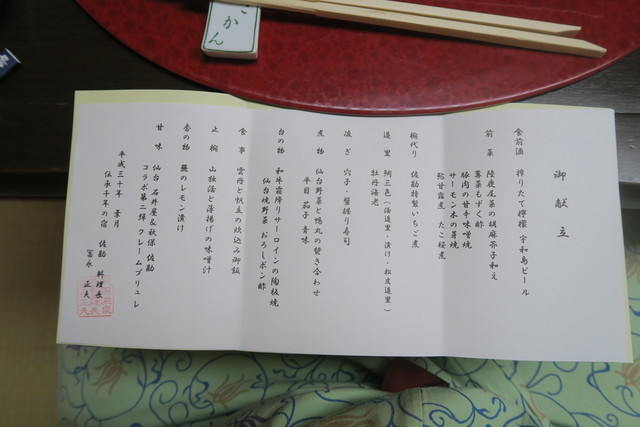 御献立
食前酒 搾りたて檸檬 宇和島ビール
前菜 陸鹿尾菜の胡麻芥子和え
蓴菜もずく酢
豚肉の甘辛味噌焼
サーモン木の芽焼
鮎甘露煮 たこ桜煮
椀代り 佐勘特製いちご煮
造里 鯛三色(活造里・漬け・松皮造里)
牡丹海老
凌ぎ 穴子・蟹縒り寿司
煮物 仙台野菜と鴨丸の焚き合わせ
平目 茄子 青味
台の物 和牛霜降りサーロインの陶板焼
仙台焼野菜 おろしポン酢
食事 雲丹と帆立の炊込み御飯
止椀 山独活と薄揚げの味噌汁
香の物 蕪のレモン漬け
甘味 仙台石井屋&秋保佐勘
コラボ第二弾 クレームブリュレ
平成三十年 葉月
伝承千年の宿 佐勘 料理長
冨永 正夫
かん